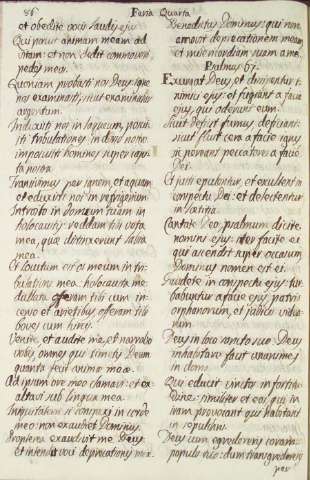 86
Feria Quarta
et obedite vocem laudis ejus
Qui posuit animam meam ad
vitam: et non dedit commoveri
pedes meos.
Quoniam probasti nos Deus: igne
nos examinasti, sicut examinatur
argentum.
Induxisti nos in laqueum, posuis
ti tribulationes in dorso nostro:
imposuisti homines super capi
ta nostra.
Transivimus per ignem, et aquam
et eduxisti nos in refrigerium
Introibo in domum tuam in
holocaustis: reddam tibi vota
mea, quæ distinxerunt labia
mea.
Et locutum est os meum in tri
bulatione mea. holocausta me
dullata offeram tibi cum in
censo et arietibus: offeram tibi
boves cum hircis.
Venite, et audite, et narrabo
vobis, omnes qui timetis Deum
quanta fecit animæ meæ.
Ad ipsum ore meo clamavi: et ex
altavi sub lingua mea.
Iniquitatem si conspexi in corde
meo: non exaudiet Dominus.
Propterea exaudivit me Deus:
et intendit voci deprecationis meæ.
Benedictus Dominus; qui non
amovit deprecationem meam
et misericordiam suam a me.
Psalmus 67.
Exurgat Deus, et dissipentur i-
nimici ejus: et fugiant a facie
ejus, qui oderunt eum.
Sicut deficit fumus, deficiant:
sicut fluit cera a facie ignis
sic pereant peccatores a facie
Dei.
Et justi epulentur, et exultent in
conspectu Dei: et delectentur
in lætitia.
Cantate Deo, psalmum dicite
nomini ejus: iter facite ei
qui ascendit super occasum
Dominus nomen est ei.
Exultate in conspectu ejus: tur
babuntur a facie ejus, patris
orphanorum, et judicis vidua
rum.
Deus in loco sancto suo: Deus
inhabitare facit unanimes
in domo.
Qui educit vinctos in fortitu
dine: similiter et eos, qui in
iram provocant qui habitant
in sepulcris.
Deus cum egredereris coram
populo tuo: dum transgredereris
per